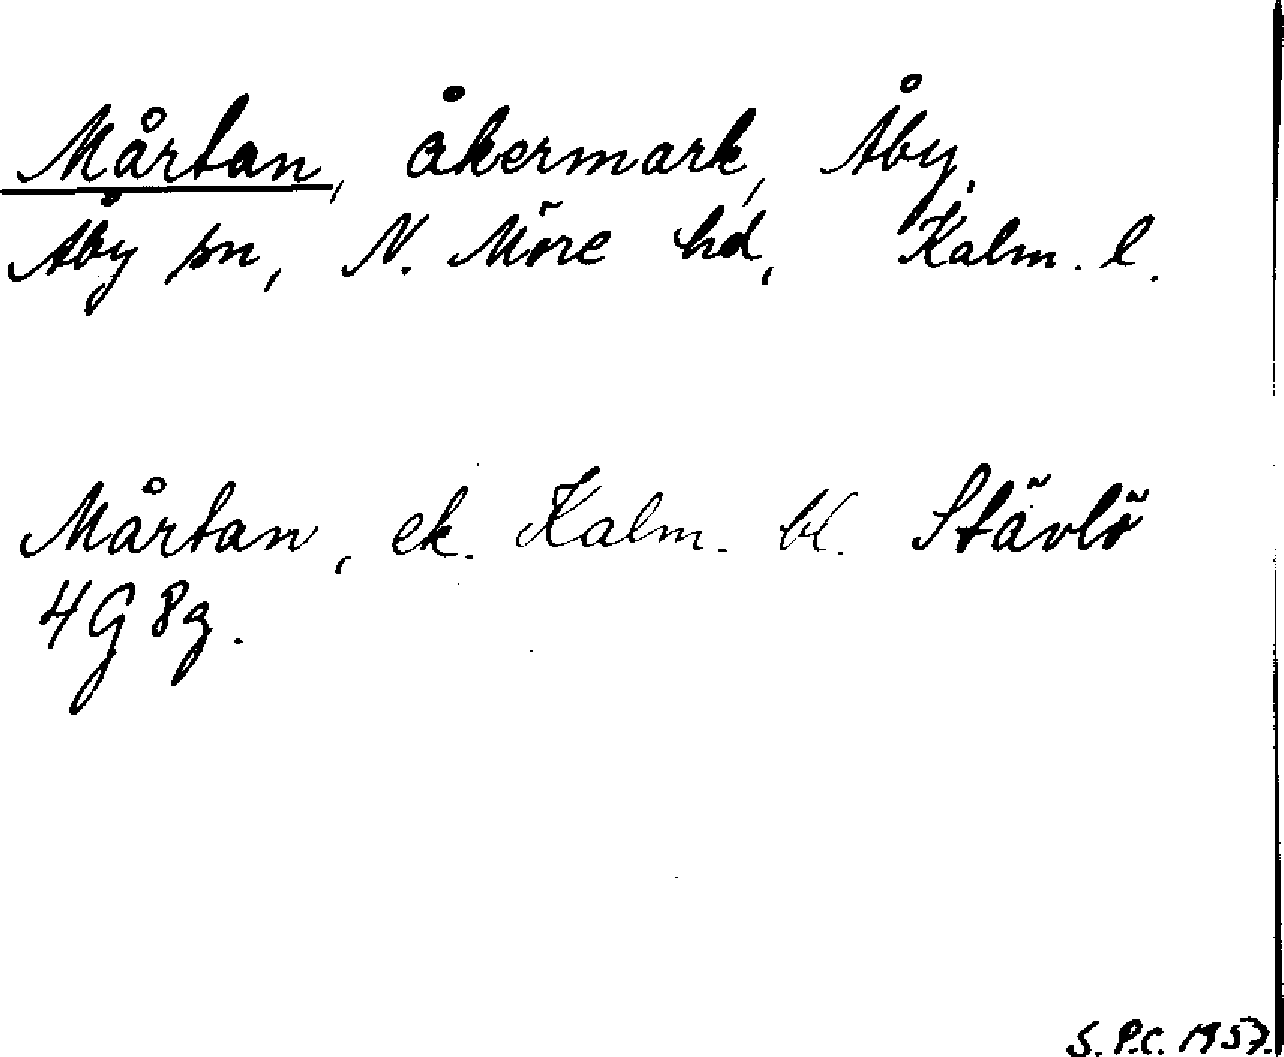 Mårtan, åkermark, Åby,
Åby sn, N. Möre hd, Kalm. l.
Mårtan, ek. Kalm. bl. Stävlö
4G 8g.
S. P.C. 1957.